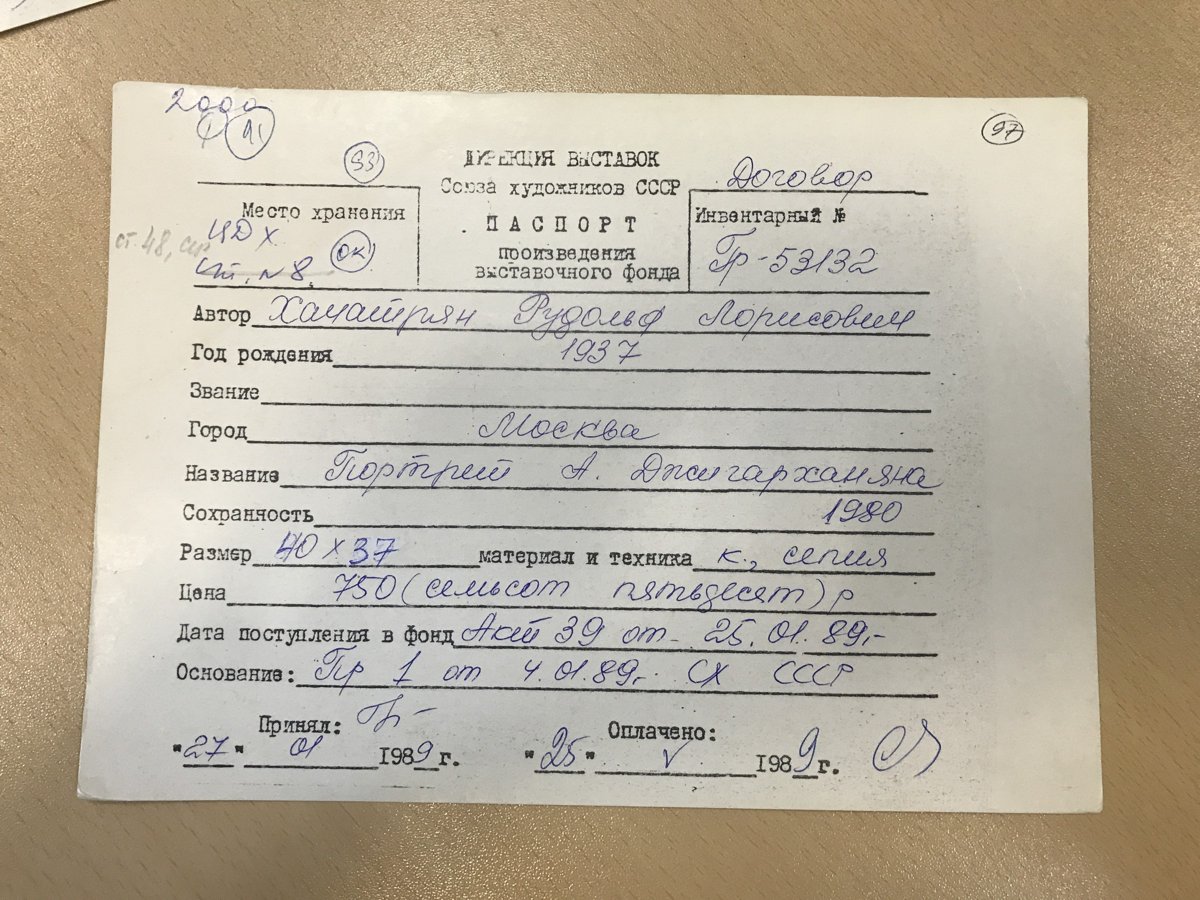 2000
11
93
97
ДИРЕКЦИЯ ВЫСТАВОК
Союза художников СССР
ПАСПОРТ
произведения
выставочного фонда
Место хранения
ЦДХ
ст. 48,
№8.
ОК
Договор
Инвентарный №
Гр-53132
Автор Хачатрян Рудольф Лорисович
Год рождения 1937
Звание
Город Москва
Название Портрет А. Джигарханяна
Сохранность 1980
Размер 40 х 37 материал и техника к., сепия
Цена 750 (семьсот пятьдесят) р
Дата поступления в фонд Акт 39 от 25.01.89г.
Основание: Пр 1 от 4.01.89г. СХ СССР
Принял: Гр- Оплачено:
"27" 01 1989г. "25" V 1989г.